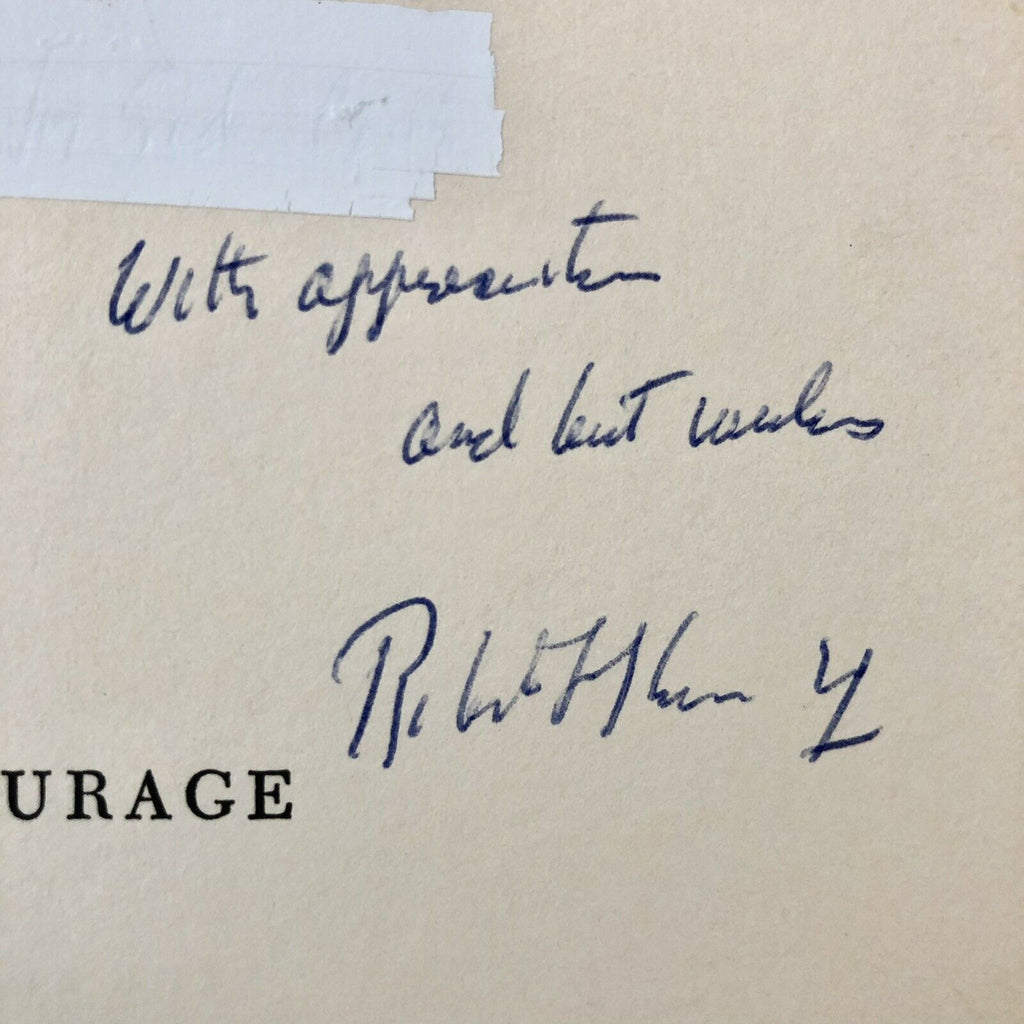 With appreciation
and best wishes
Robert F Kennedy
URAGE